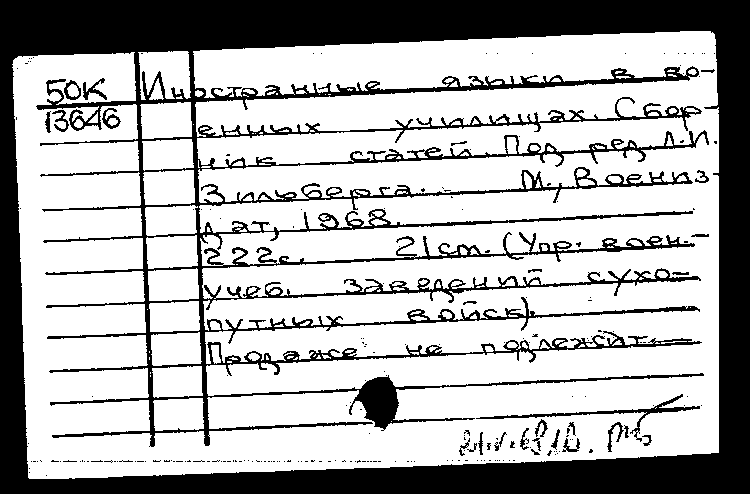 50К Иностранные языки в во-
13646 енных училищах. Сбор-
ник статей. Под ред. Л.И.
Зильберга. М., Воениз-
дат, 1968.
222с. 21см. (Упр. воен.-
учеб. заведений сухо-
путных войск).
Продаже не подлежит.